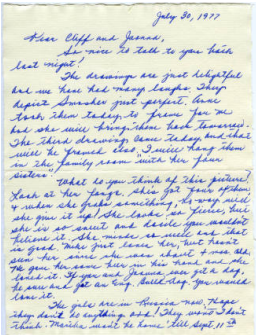 July 30, 1977
Dear Cliff and Joanna,
So nice to talk to you both
last night!
The drawings are just delightful
and we have had many laughs. They
depict Smasher just perfect. Anne
took them today, to frame for me
and she will bring them back tomorrow.
The third drawing came today and that
will be framed also. I will hang them
in the family room "with her four
sisters"
What do you think of this picture!
Look at her fangs, she's got four of them
& when she grabs something, no way will
she give it up! She looks so fierce, but
she is so sweet and docile you wouldn't
believe it. She minds so well and that
is good. Mike just loves her, but hasn't
seen her since she was about 9 wks. old.
He gave her some beer in his hand and she
loved it. If you and Joanna ever get a dog,
be sure and get an Eng. Bull dog. You would
love it.
The girls are in Russia now, hope
they don't do anything and! They won't I don't
think. Marika won't be home till Sept. 11th